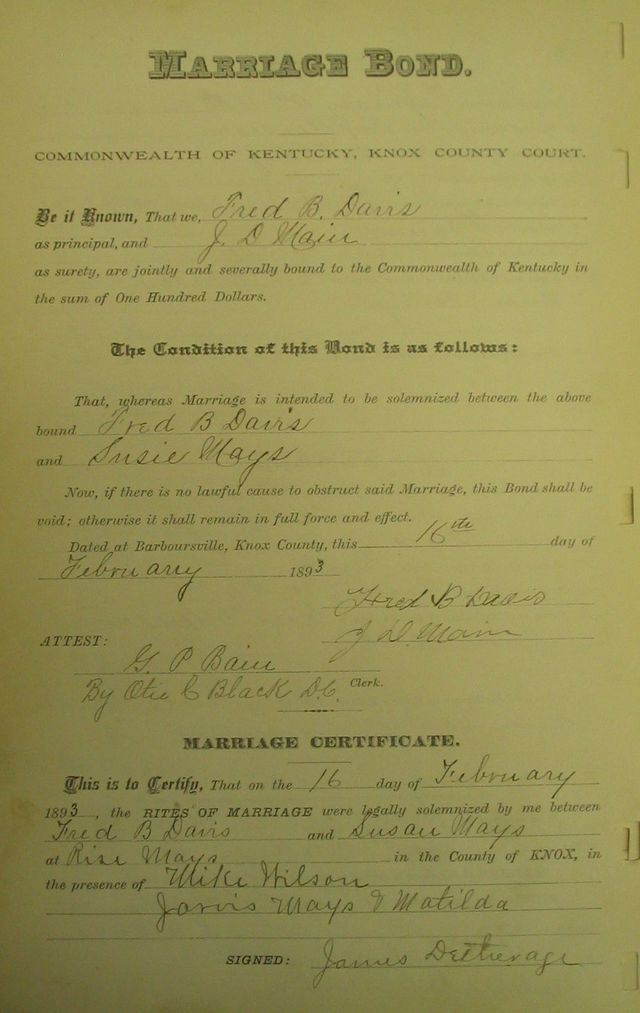 MARRIAGE BOND.
COMMONWEALTH OF KENTUCKY, KNOX COUNTY COURT.
Be it Known, That we, Fred B. Davis
as principal, and J. D Main
as surety, are jointly and severally bound to the Commonwealth of Kentucky in
the sum of One Hundred Dollars.
The Condition of this Bond is as follows:
That, whereas Marriage is intended to be solemnized between the above
bound Fred B Davis
and Susie Mays
Now, if there is no lawful cause to obstruct said Marriage, this Bond shall be
void; otherwise it shall remain in full force and effect.
Dated at Barboursville, Knox County, this 16th day of
February 1893
Fred B Davis
J. D. Main
ATTEST:
G. P Bain
By Otie C Black D.C. Clerk.
MARRIAGE CERTIFICATE.
This is to Certify, That on the 16 day of February
1893, the RITES OF MARRIAGE were legally solemnized by me between
Fred B Davis and Susan Mays
at Rise Mays in the County of KNOX, in
the presence of Mike Wilson
Jarvis Mays & Matilda
SIGNED: James Detherage